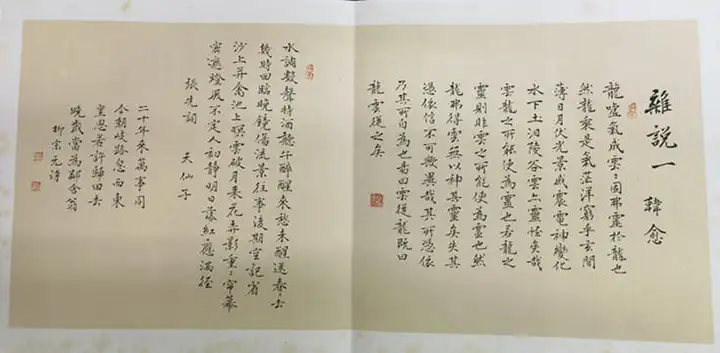 雜說一 韓愈
龍噓氣成雲〻固弗靈於龍也
然龍乘是氣茫洋窮乎玄間
薄日月伏光景感震電神變化
水下土汩陵谷雲亦靈怪矣哉
雲龍之所能使為靈也若龍之
靈則非雲之所能使為靈也然
龍弗得雲無以神其靈矣失其
憑依信不可歟異哉其所憑依
乃其所自為也易曰雲從龍既曰
龍雲從之矣
水調數聲持酒聽午醉醒來愁未醒送春去
幾時回臨晚鏡傷流景往事後期空記省
沙上并禽池上暝雲破月來花弄影重〻帘幕
密遮燈風不定人初靜明日落紅應滿徑
張先詞 天仙子
二十年來萬事同
今朝岐路忽西東
皇恩若許歸田去
晚歲當為鄰舍翁
柳宗元詩